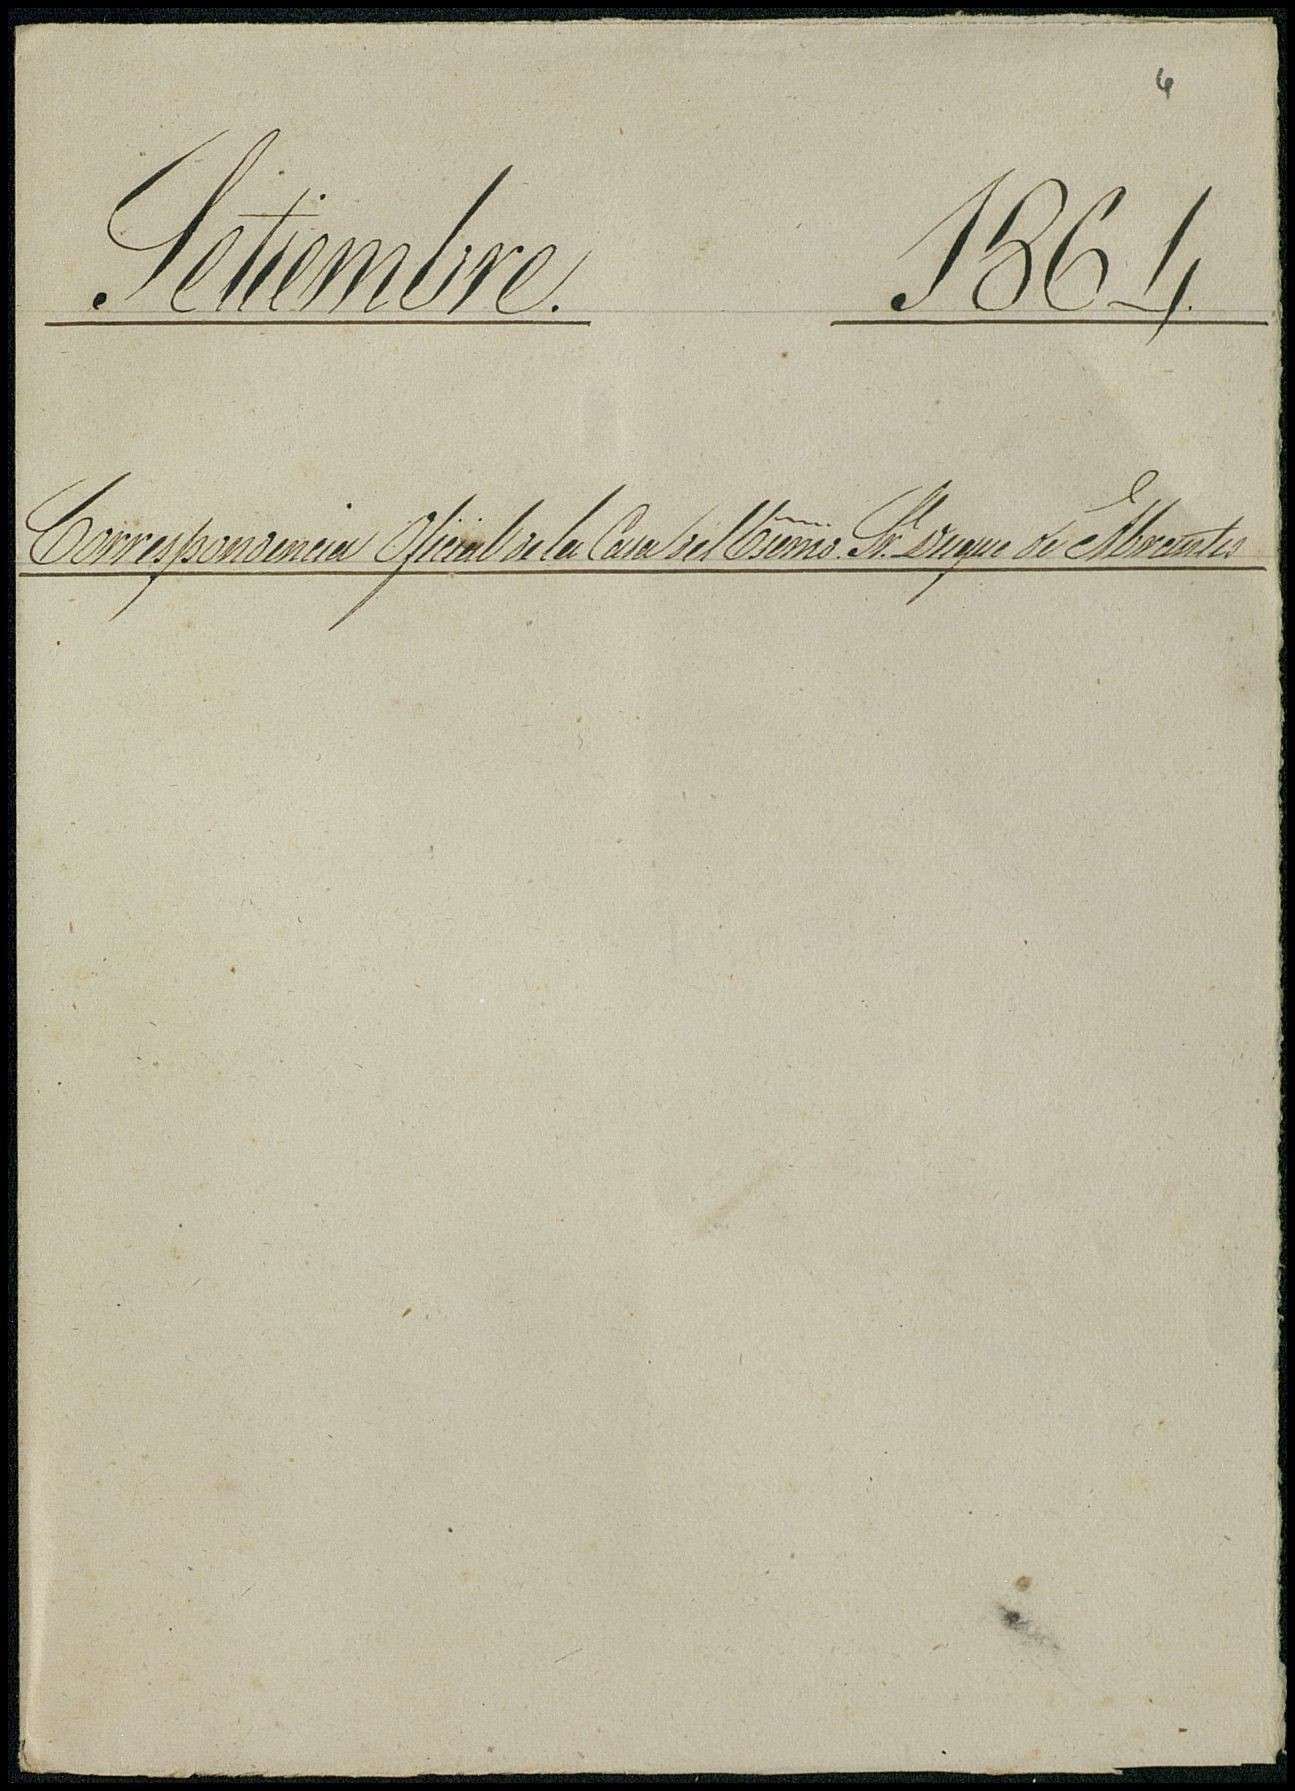 6
Setiembre. 1864.
Correspondencia Oficial de la Casa del Excmo. Sr. Duque de Abrantes